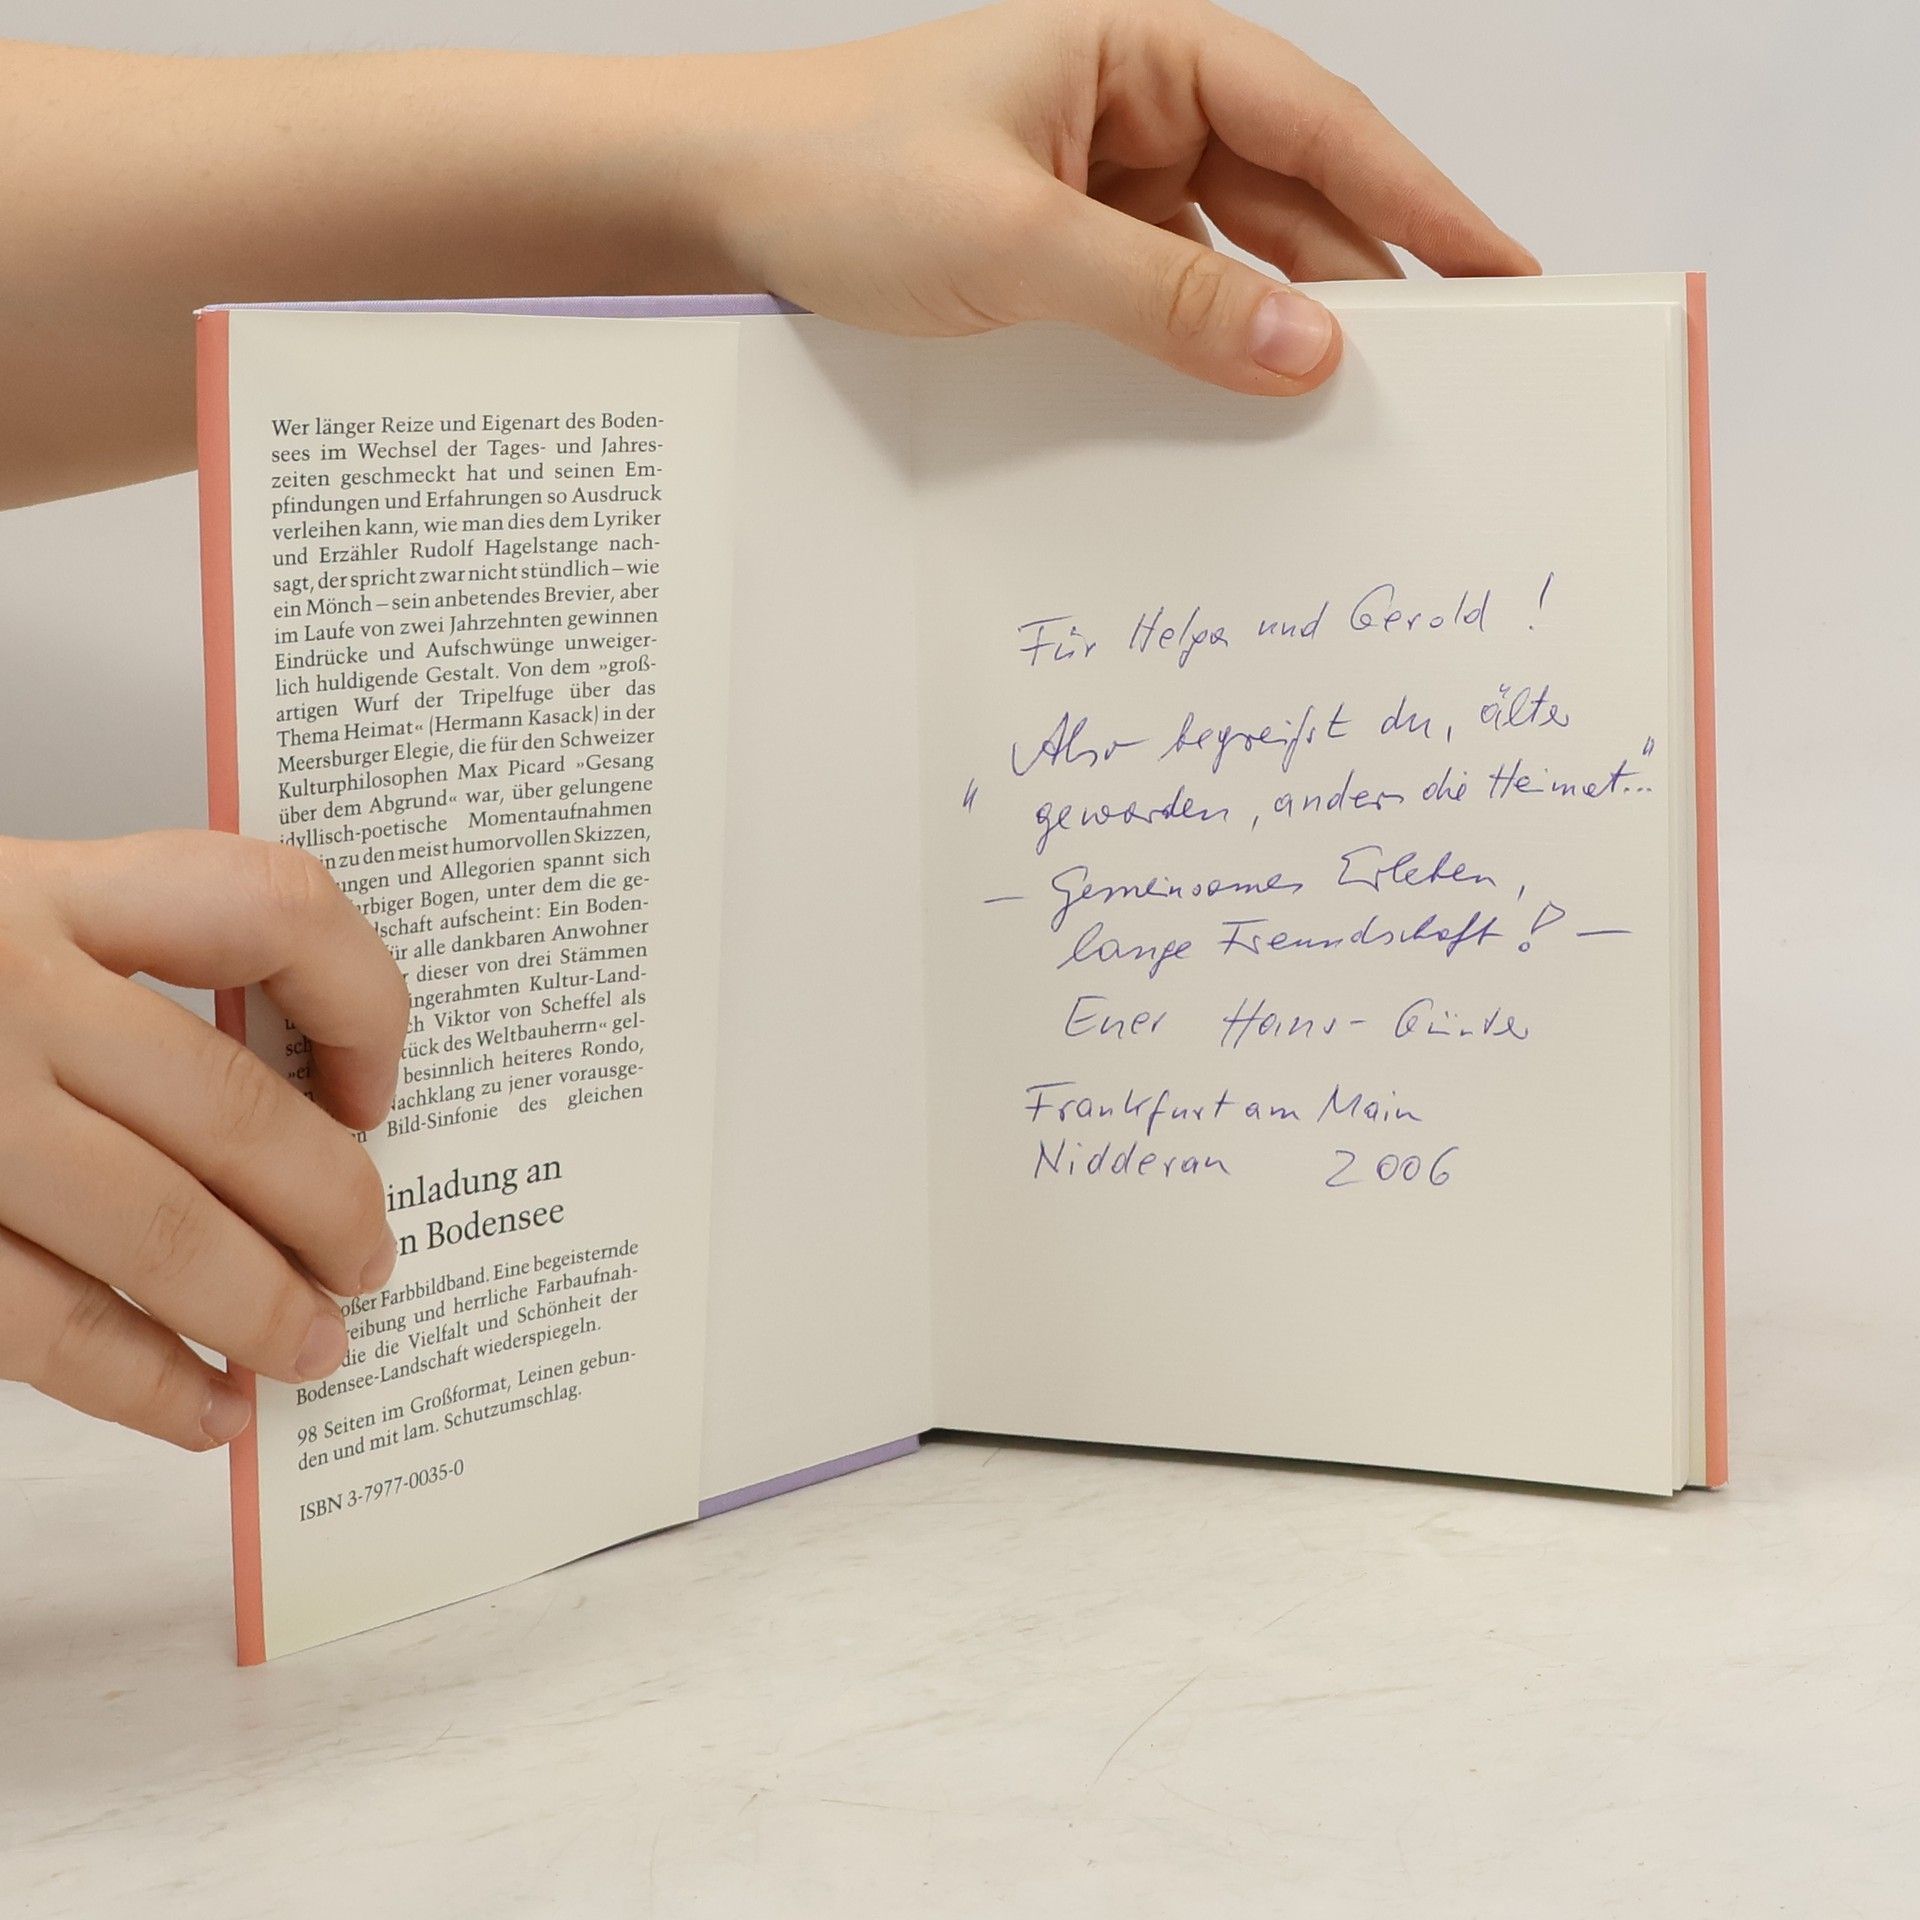 Wer länger Reize und Eigenart des Boden-
sees im Wechsel der Tages- und Jahres-
zeiten geschmeckt hat und seinen Em-
pfindungen und Erfahrungen so Ausdruck
verleihen kann, wie man dies dem Lyriker
und Erzähler Rudolf Hagelstange nach-
sagt, der spricht zwar nicht stündlich – wie
ein Mönch – sein anbetendes Brevier, aber
im Laufe von zwei Jahrzehnten gewinnen
Eindrücke und Aufschwünge unweiger-
lich huldigende Gestalt. Von dem »groß-
artigen Wurf der Tripelfuge über das
Thema Heimat« (Hermann Kasack) in der
Meersburger Elegie, die für den Schweizer
Kulturphilosophen Max Picard »Gesang
über dem Abgrund« war, über gelungene
idyllisch-poetische Momentaufnahmen
in zu den meist humorvollen Skizzen,
ungen und Allegorien spannt sich
rbiger Bogen, unter dem die ge-
dschaft aufscheint: Ein Boden-
ür alle dankbaren Anwohner
r dieser von drei Stämmen
ingerahmten Kultur-Land-
sch ch Viktor von Scheffel als
»ei tück des Weltbauherrn« gel-
besinnlich heiteres Rondo,
Nachklang zu jener vorausge-
n Bild-Sinfonie des gleichen
inladung an
n Bodensee
oßer Farbbildband. Eine begeisternde
reibung und herrliche Farbaufnah-
die die Vielfalt und Schönheit der
Bodensee-Landschaft wiederspiegeln.
98 Seiten im Großformat, Leinen gebun-
den und mit lam. Schutzumschlag.
ISBN 3-7977-0035-0
Für Helga und Gerold !
Also begreifst du, älter
" geworden, anders die Heimat..."
— Gemeinsames Erleben,
lange Freundschaft! —
Euer Hans-Günter
Frankfurt am Main
Nidderau 2006